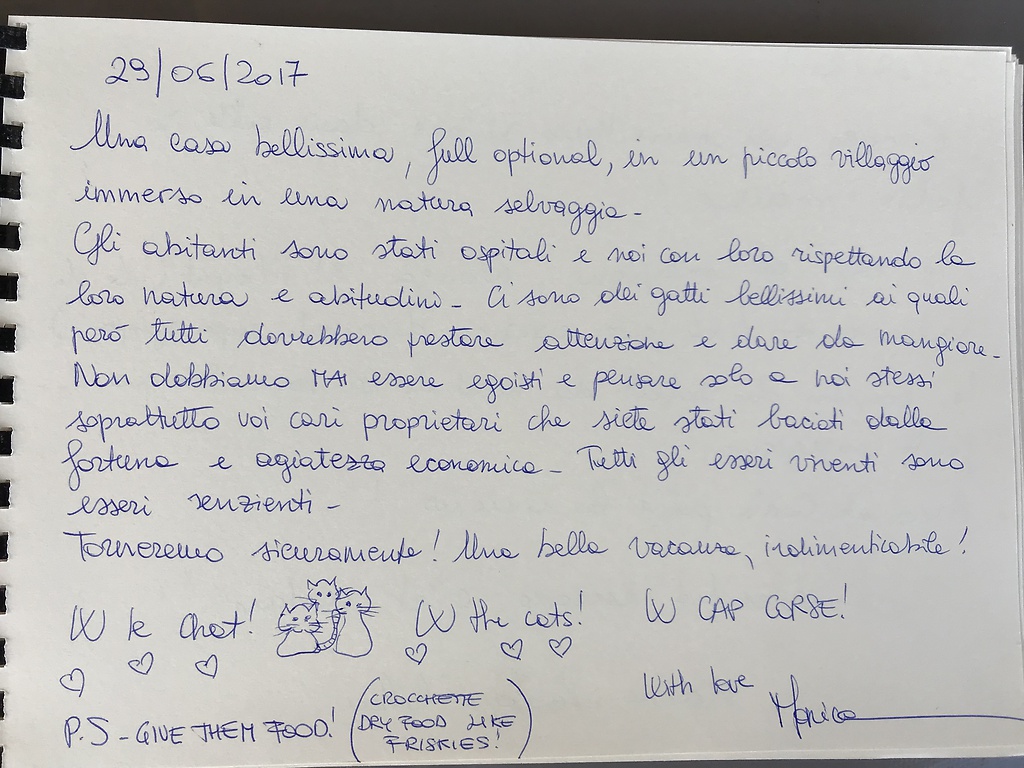 29/06/2017
Una casa bellissima, full optional, in un piccolo villaggio
immerso in una natura selvaggia -
Gli abitanti sono stati ospitali e noi con loro rispettando la
loro natura e abitudini - Ci sono dei gatti bellissimi ai quali
però tutti dovrebbero prestare attenzione e dare da mangiare -
Non dobbiamo MAI essere egoisti e pensare solo a noi stessi
soprattutto voi cari proprietari che siete stati baciati dalla
fortuna e agiatezza economica - Tutti gli esseri viventi sono
esseri senzienti -
Torneremo sicuramente! Una bella vacanza, indimenticabile!
W le chat! W the cats! W CAP CORSE!
With love
Monica
P.S - GIVE THEM FOOD! (CROCCHETTE
DRY FOOD LIKE
FRISKIES!)